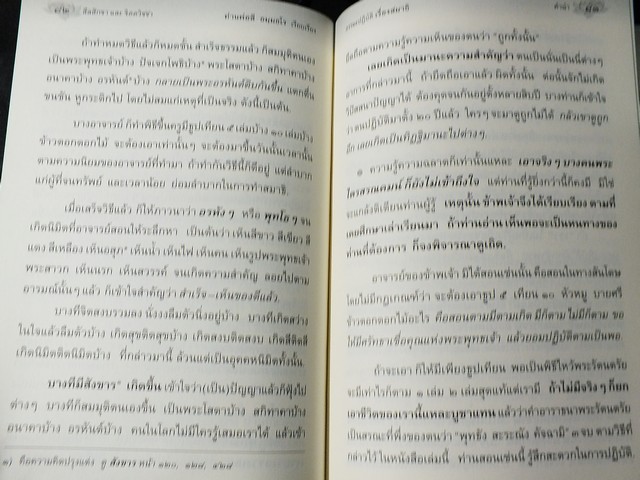 ศีลสิกขา และ จิตตวิขา ท่านพ่อลี ธมฺมธโร เรียบเรียง
ถ้ากำหนดวิธีแล้วก็หมดขั้น สำเร็จธรรมแล้ว ก็สมมุติตนเอง
เป็นพระพุทธเจ้าบ้าง ปัจเจกโพธิบ้าง พระโสดาบ้าง สกิทาคาบ้าง
อนาคาบ้าง อรหันต์บ้าง กลายเป็นพระอรหันต์ดิบกันขึ้น แตกตื่น
ขนชัน หูกระดิกไป โดยไม่สมแก่เหตุที่เป็นจริง ดังนี้เป็นต้น
บางอาจารย์ ก็ทำพิธีขึ้นครูมีธูปเทียน ๕ เล่มบ้าง ๑๐ เล่มบ้าง
ข้าวตอกดอกไม้ จะต้องเอาเท่านั้นๆ จะต้องมาขึ้นวันนั้นเวลานั้น
ตามความนิยมของอาจารย์ที่ทำมา ถ้าทำกันวิธีนี้ก็ดีอยู่ แต่ลำบาก
แก่ผู้ที่จนทรัพย์ และเวลาน้อย ย่อมลำบากในการทำสมาธิ.
เมื่อเสร็จวิธีแล้ว ก็ให้ภาวนาว่า อรหังๆ หรือ พุทโธๆ จน
เกิดนิมิตที่อาจารย์สอนให้ระลึกหา เป็นต้นว่า เห็นสีขาว สีเขียว สี
แดง สีเหลือง เห็นอสุภ เห็นน้ำ เห็นไฟ เห็นคน เห็นรูปพระพุทธเจ้า
พระสาวก เห็นนรก เห็นสวรรค์ จนเกิดความสำคัญ ลอยไปตาม
อารมณ์นั้นๆ แล้ว ก็เข้าใจสำคัญว่า สำเร็จ–เห็นของดีแล้ว.
บางทีจิตสงบรวมลง นั่งงงลืมตัวนิ่งอยู่บ้าง บางทีเกิดสว่าง
ในใจแล้วลืมตัวบ้าง เกิดสุขติดสุขบ้าง เกิดสงบติดสงบ เกิดสีติดสี
เกิดนิมิตติดนิมิตบ้าง ที่กล่าวมานี้ ล้วนแต่เป็นอุคคหนิมิตทั้งนั้น.
บางทีมีสังขาร เกิดขึ้น เข้าใจว่า(เป็น)ปัญญาแล้วก็ฟุ้งไป
ต่างๆ บางทีก็สมมุติตนเองขึ้น เป็นพระโสดาบ้าง สกิทาคาบ้าง
อนาคาบ้าง อรหันต์บ้าง คนในโลกไม่มีใครรู้เสมอเราได้ แล้วเข้า
๑) คือความคิดปรุงแต่ง ดู สังขาร หน้า ๑๒๐, ๑๒๘, ๔๒๘
เรื่องสมาธิ คำนำ
ยึดถือตามความรู้ความเห็นของตนว่า "ถูกทั้งนั้น"
เลยเกิดเป็นมานะความสำคัญว่า ตนเป็นนั่นเป็นนี่ต่างๆ
อาการที่กล่าวมานี้ ถ้ามีดถือเอาแล้ว ผิดทั้งนั้น ต่อนั้นจักไม่เกิด
วิปัสสนาปัญญาได้ ต้องขุดจนกันอยู่ตั้งหลายสิบปี บางท่านก็เข้าใจ
ว่า ตนปฏิบัติมาตั้ง ๒๐ ปีแล้ว ใครๆ จะมาดูถูกไม่ได้ กลัวเขาดูถูก
อีก เลยเกิดเป็นทิฏฐิมานะไปต่างๆ.
ความรู้ความฉลาดก็เท่านั้นแหละ เอาจริงๆ บางคนพระ
ไตรสรณคมน์ ก็ยังไม่เข้าถึงใจ แต่ท่านที่รู้ยิ่งกว่านี้ก็คงมี มิใช่
จะแกล้งติเตียนท่านผู้รู้ เหตุนั้น ข้าพเจ้าจึงได้เรียบเรียง ตามที่
เคยศึกษาเล่าเรียนมา ถ้าท่านอ่าน เห็นพอจะเป็นหนทางของ
ท่านที่ต้องการ ก็จงพิจารณาดูเถิด.
อาจารย์ของข้าพเจ้า มิได้สอนเช่นนั้น คือสอนในทางสันโดษ
โดยไม่มีกฎเกณฑ์ว่า จะต้องเอาธูป ๕ เทียน ๑๐ หัวหมู บายศรี
ข้าวตอกดอกไม้อะไร คือสอนตามมีตามเกิด มีก็ตาม ไม่มีก็ตาม ขอ
ให้มีศรัทธาเชื่อคุณแห่งพระพุทธเจ้า แล้วยอมปฏิบัติตามเป็นพอ
ถ้าจะเอา ก็ให้มีเพียงธูปเทียน พอเป็นพิธีไหว้พระรัตนตรัย
จะมีเท่าไรก็ตาม ๑ เล่ม ๒ เล่มสุดแท้แต่เรามี ถ้าไม่มีจริงๆ ก็ยก
เอาชีวิตของเรานี้แหละบูชาแทน แล้วว่าคำอาราธนาพระรัตนตรัย
เป็นสรณะที่พึ่งของตนว่า "พุทธัง สะระณัง คัจฉามิ" ๓ จบ ตามวิธีที่
กล่าวไว้ในหนังสือเล่มนี้ ท่านสอนเช่นนี้ รู้สึกสะดวกในการปฏิบัติ.